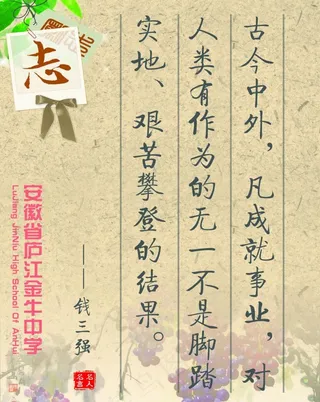 志
古今中外，凡成就事业，对
人类有作为的无一不是脚踏
实地、艰苦攀登的结果。
——钱三强
名人
名言
安徽省庐江金牛中学
LuJiang JinNiu High School Of AnHui